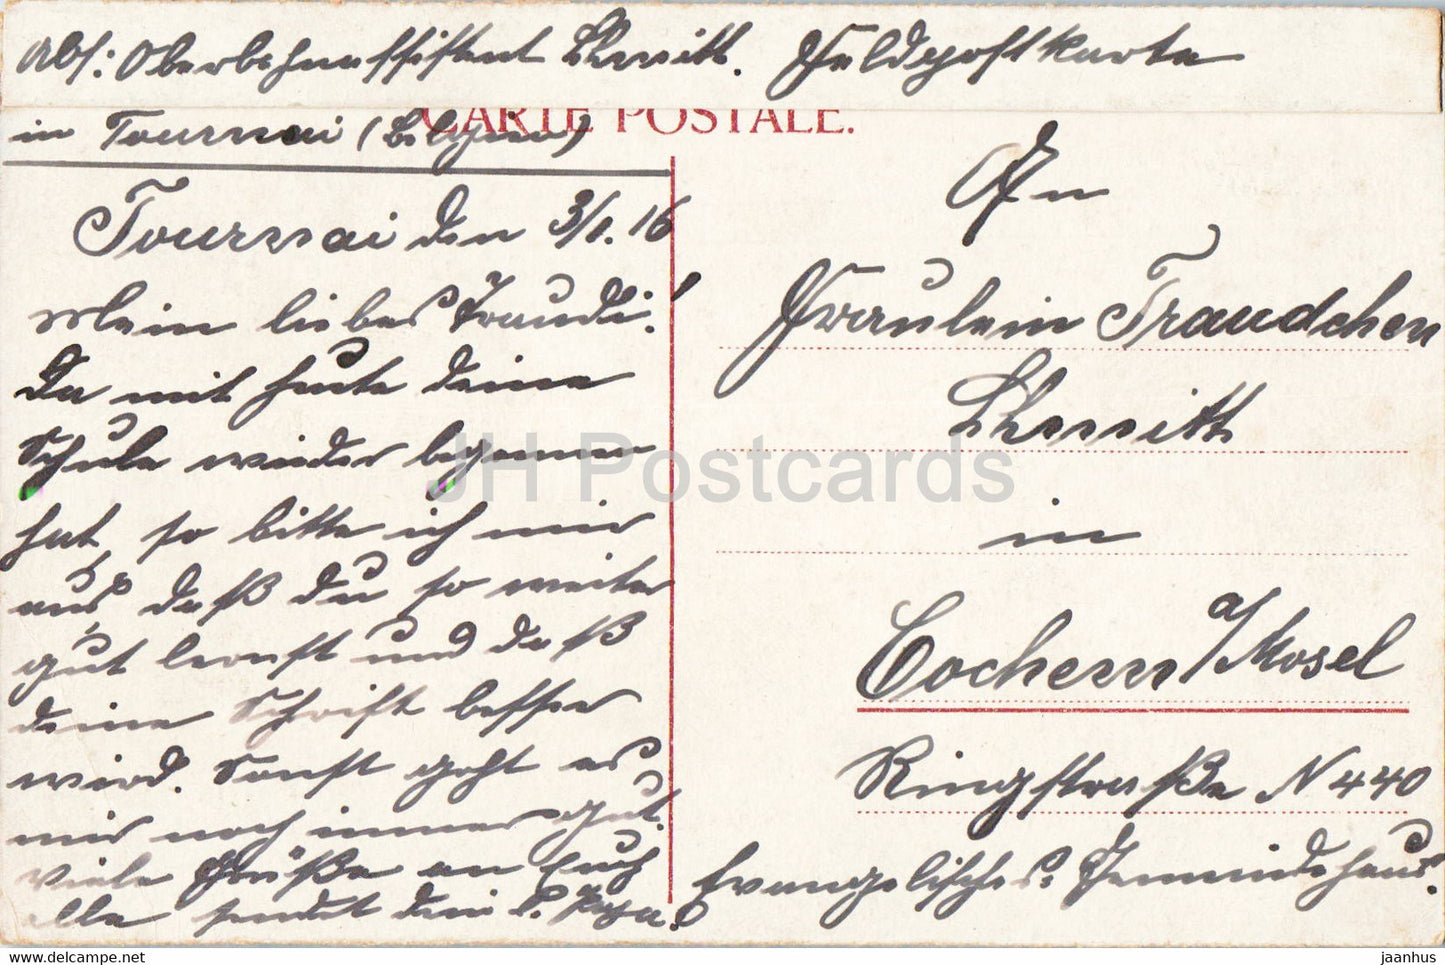 Abs: Oberbahnassistent Schmitt. Feldpostkarte
in Tournai (Belgien)
CARTE POSTALE.
Tournai den 3/1. 16
Mein liebes Traudi!
Da mit heute deine
Schule wieder begonnen
hat, so bitte ich mir
aus, daß du so weiter
gut lernst und daß
deine Schrift besser
wird. Sonst geht es
mir noch immer gut.
Viele Grüße an Euch
alle sendet dein l. Papa.
An
Fräulein Traudchen
Schmitt
in
Cochem a/Mosel
Ringstraße N 440
Evangelisches Gemeindehaus.
JH Postcards
www.delcampe.net
jaanhus